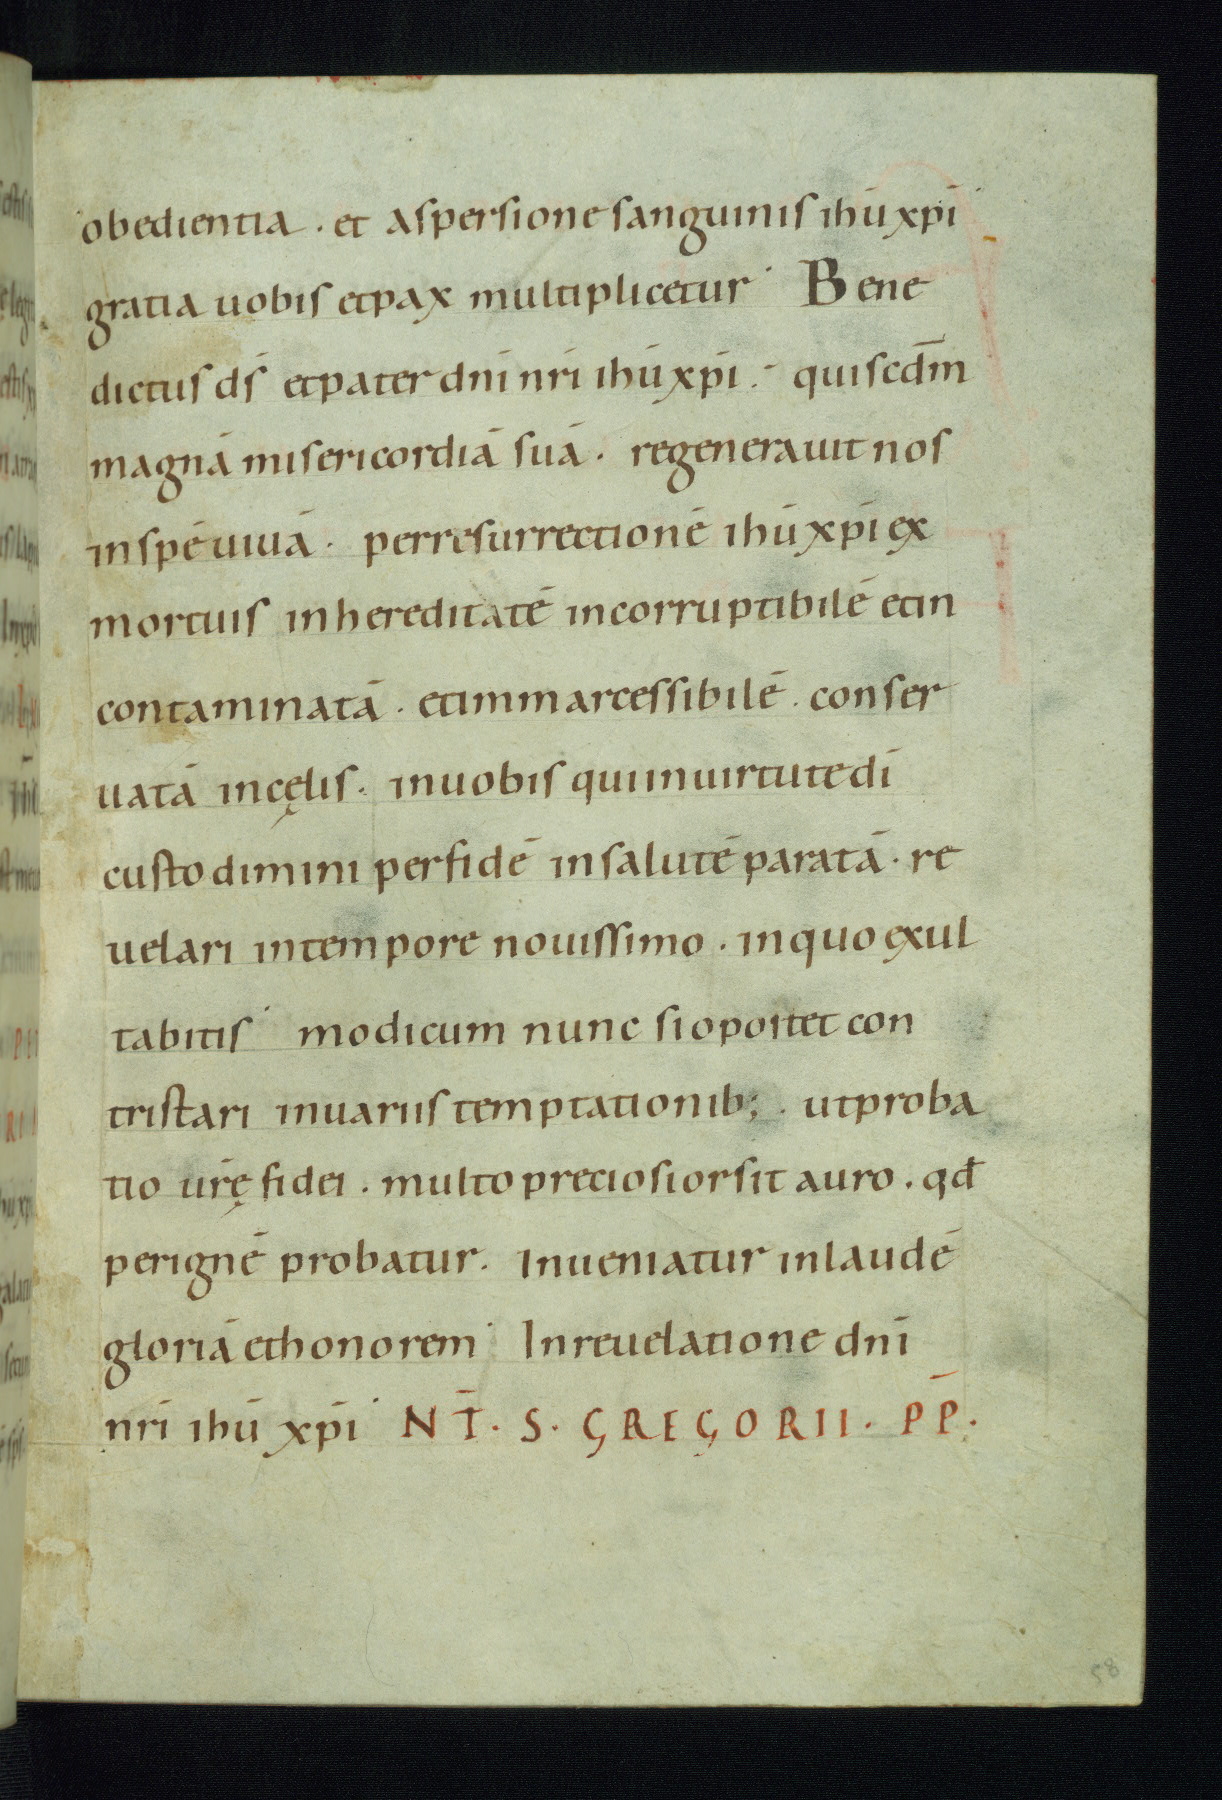 obedientia . et aspersione sanguinis ihū xp̄i
gratia uobis et pax multiplicetur Bene
dictus ds̄ et pater dn̄i nr̄i ihū xp̄i . qui scd̄m
magnā misericordiā suā . regenerauit nos
in spē uiuā . per resurrectionē ihū xp̄i ex
mortuis in hereditatē incorruptibilē et in
contaminatā . et inmarcessibilē . conser
uatā in cęlis . in uobis qui in uirtute dī
custodimini per fidē in salutē paratā . re
uelari in tempore nouissimo . in quo exul
tabitis modicum nunc si oportet con
tristari in uariis temptationib; . ut proba
tio ur̄ę fidei . multo preciosior sit auro . qđ
per ignē probatur . Inueniatur in laudē
gloriā et honorem In reuelatione dn̄i
nr̄i ihū xp̄i NT̄ . S . GREGORII . PP̄ .
58